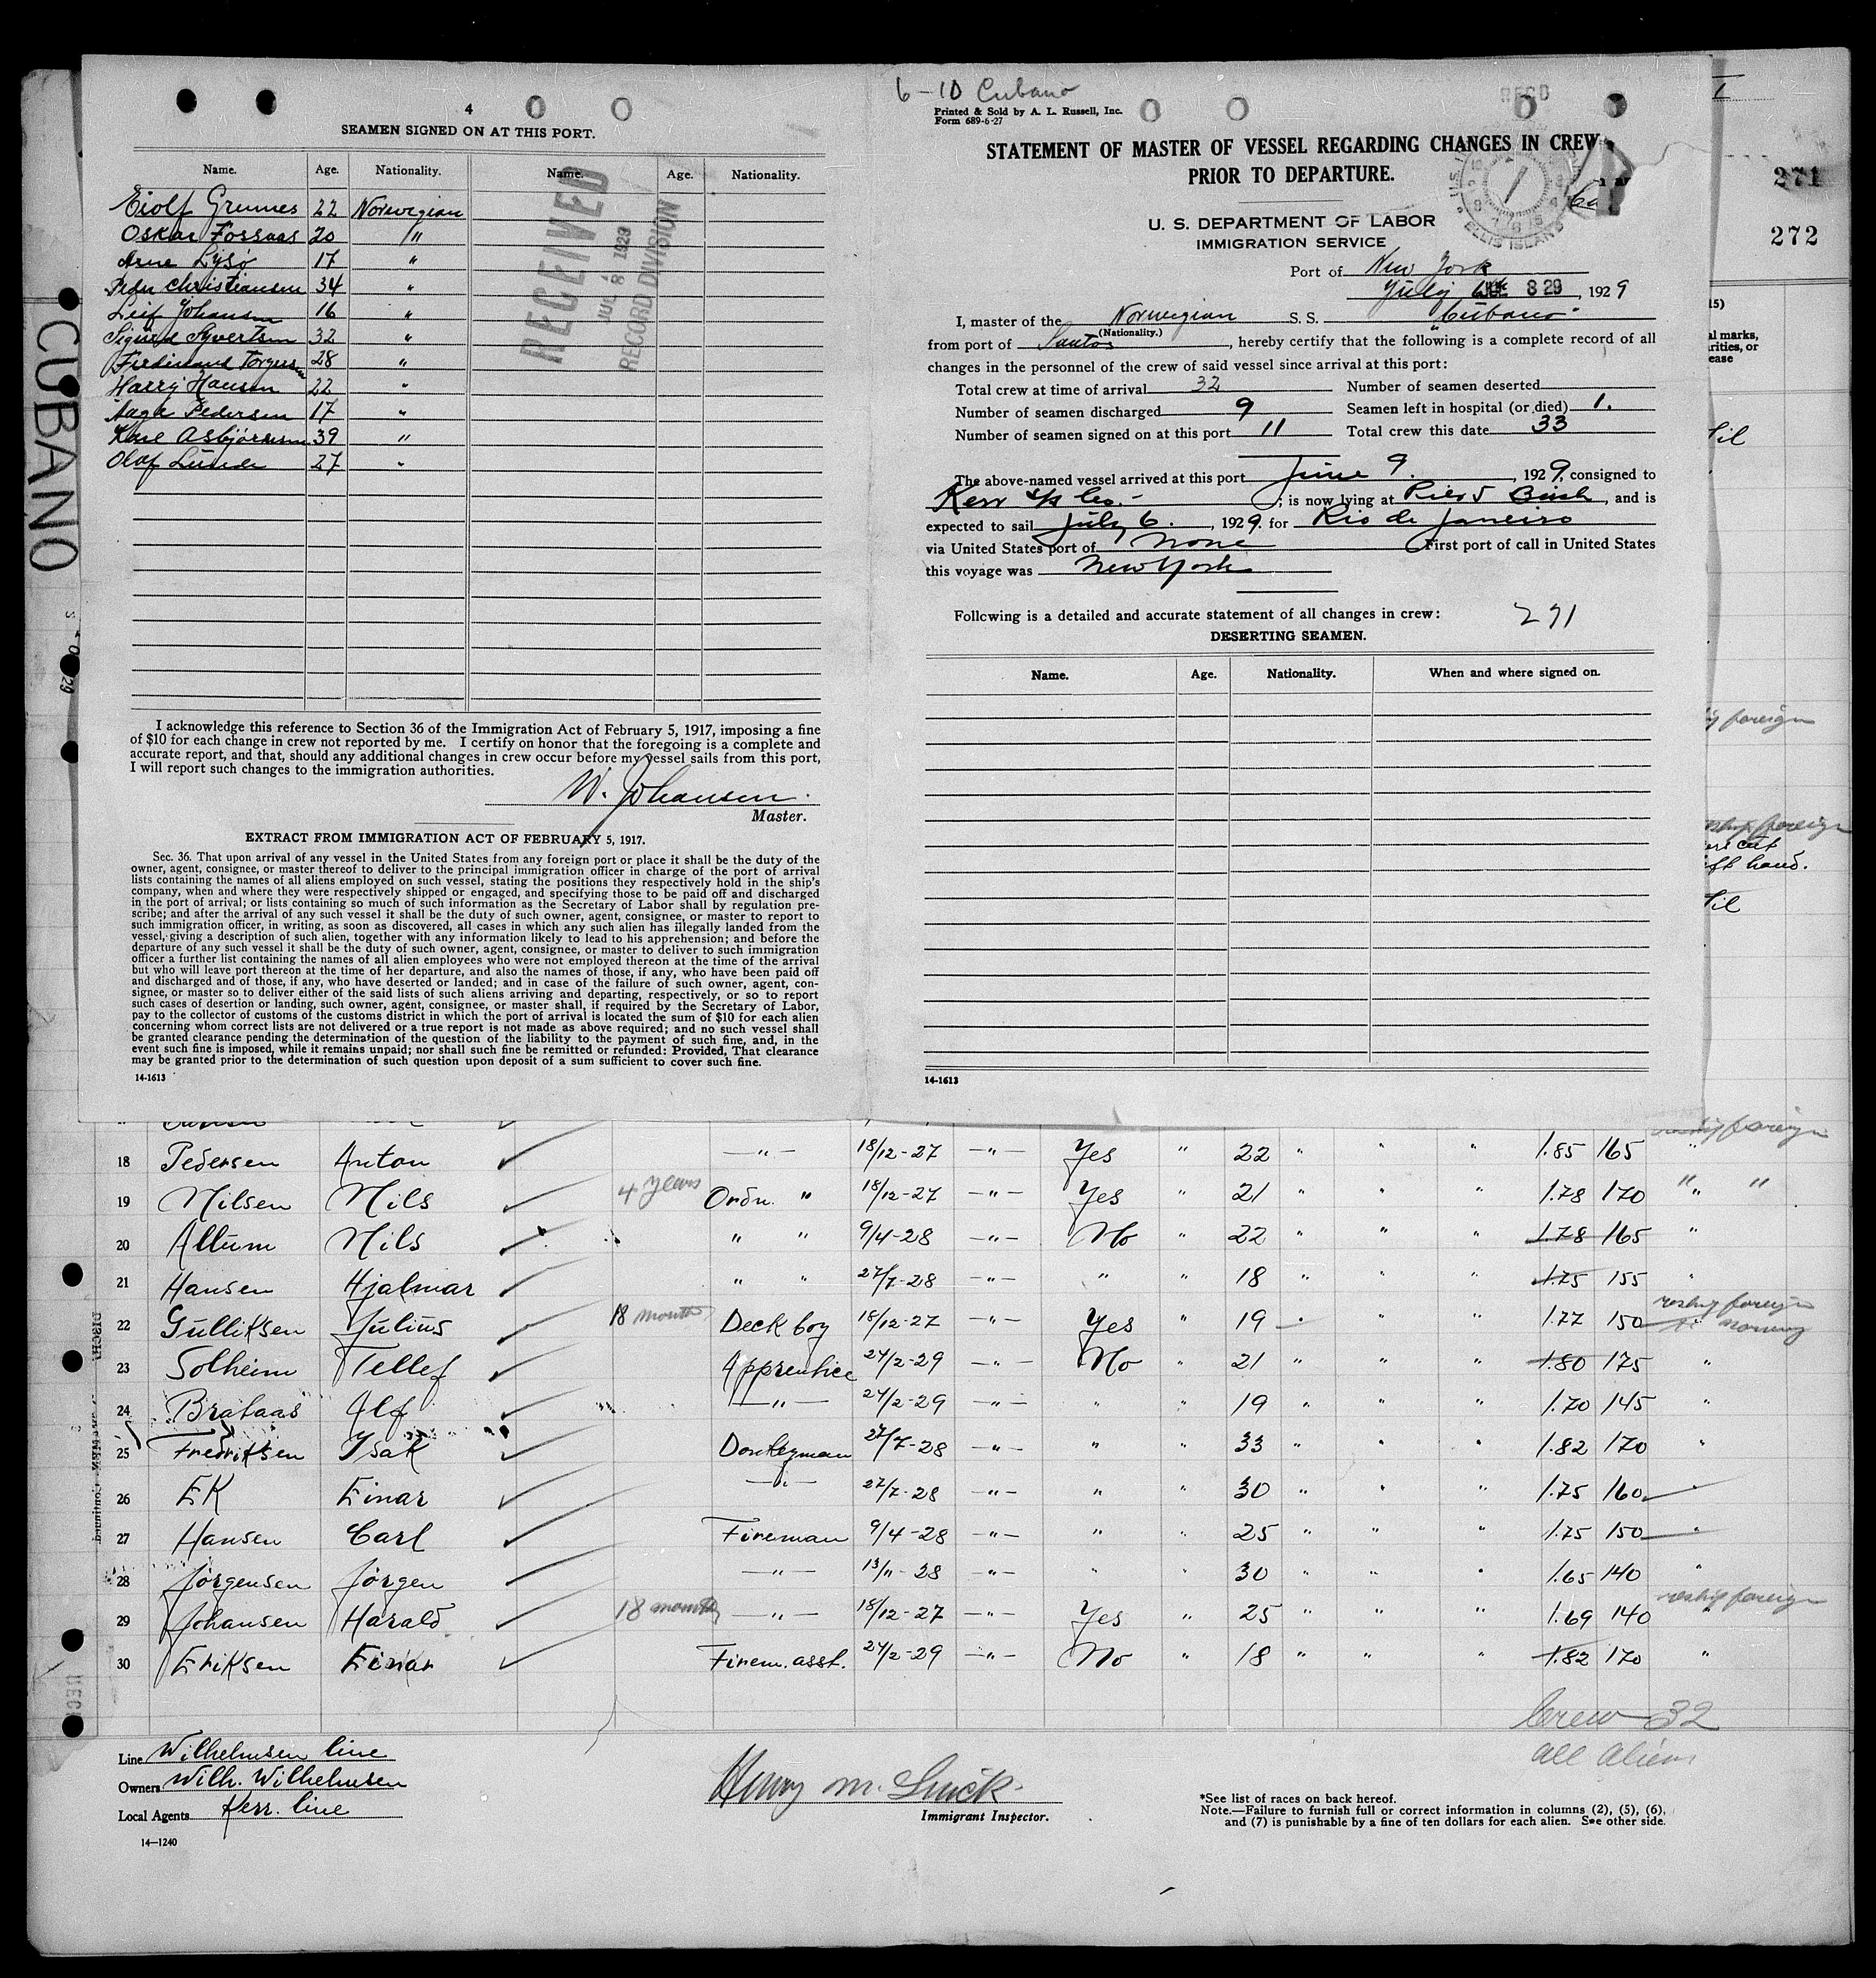 4
SEAMEN SIGNED ON AT THIS PORT.
Name. Age. Nationality. Name. Age. Nationality.
Eiolf Grunnes 22 Norwegian
Oskar Fossaas 20 "
Arne Lysö 17 "
Peder Christiansen 34 "
Leif Johansen 16 "
Sigurd Syvertsen 32 "
Ferdinand Torgersen 28 "
Harry Hansen 22 "
Aage Pedersen 17 "
Karl Asbjörnsen 39 "
Olaf Lunde 27 "
RECEIVED
JUL 8 1929
RECORD DIVISION
CUBANO
I acknowledge this reference to Section 36 of the Immigration Act of February 5, 1917, imposing a fine
of $10 for each change in crew not reported by me. I certify on honor that the foregoing is a complete and
accurate report, and that, should any additional changes in crew occur before my vessel sails from this port,
I will report such changes to the immigration authorities.
W. Johansen.
Master.
EXTRACT FROM IMMIGRATION ACT OF FEBRUARY 5, 1917.
Sec. 36. That upon arrival of any vessel in the United States from any foreign port or place it shall be the duty of the
owner, agent, consignee, or master thereof to deliver to the principal immigration officer in charge of the port of arrival
lists containing the names of all aliens employed on such vessel, stating the positions they respectively hold in the ship's
company, when and where they were respectively shipped or engaged, and specifying those to be paid off and discharged
in the port of arrival; or lists containing so much of such information as the Secretary of Labor shall by regulation pre-
scribe; and after the arrival of any such vessel it shall be the duty of such owner, agent, consignee, or master to report to
such immigration officer, in writing, as soon as discovered, all cases in which any such alien has illegally landed from the
vessel, giving a description of such alien, together with any information likely to lead to his apprehension; and before the
departure of any such vessel it shall be the duty of such owner, agent, consignee, or master to deliver to such immigration
officer a further list containing the names of all alien employees who were not employed thereon at the time of the arrival
but who will leave port thereon at the time of her departure, and also the names of those, if any, who have been paid off
and discharged and of those, if any, who have deserted or landed; and in case of the failure of such owner, agent, con-
signee, or master so to deliver either of the said lists of such aliens arriving and departing, respectively, or so to report
such cases of desertion or landing, such owner, agent, consignee, or master shall, if required by the Secretary of Labor,
pay to the collector of customs of the customs district in which the port of arrival is located the sum of $10 for each alien
concerning whom correct lists are not delivered or a true report is not made as above required; and no such vessel shall
be granted clearance pending the determination of the question of the liability to the payment of such fine, and, in the
event such fine is imposed, while it remains unpaid; nor shall such fine be remitted or refunded: Provided, That clearance
may be granted prior to the determination of such question upon deposit of a sum sufficient to cover such fine.
14-1613
6-10 Cubano
Printed & Sold by A. L. Russell, Inc.
Form 689-6-27
STATEMENT OF MASTER OF VESSEL REGARDING CHANGES IN CREW
PRIOR TO DEPARTURE.
ELLIS ISLAND
U. S. DEPARTMENT OF LABOR
IMMIGRATION SERVICE
Port of New York
July 8 29, 1929
I, master of the Norwegian S. S. "Cubano"
(Nationality.)
from port of Santos, hereby certify that the following is a complete record of all
changes in the personnel of the crew of said vessel since arrival at this port:
Total crew at time of arrival 32 Number of seamen deserted
Number of seamen discharged 9 Seamen left in hospital (or died) 1.
Number of seamen signed on at this port 11 Total crew this date 33
The above-named vessel arrived at this port June 9., 1929, consigned to
Kerr s/s Co.; is now lying at Pier 5 Bush, and is
expected to sail July 6., 1929. for Rio de Janeiro
via United States port of None First port of call in United States
this voyage was New York
Following is a detailed and accurate statement of all changes in crew: 271
DESERTING SEAMEN.
Name. Age. Nationality. When and where signed on.
14-1613
271
272
15)
al marks,
rities, or
ease
Nil
foreign
foreign
cut
left hand.
Nil
18 Pedersen Anton —"— 18/12-27 —"— Yes " 22 " " " 1.85 165 "
19 Nilsen Nils 4 years Ordn. " 18/12-27 —"— Yes " 21 " " " 1.78 170 " "
20 Allum Nils " " 9/4-28 —"— No " 22 " " " 1.78 165 "
21 Hansen Hjalmar " " 27/7-28 —"— " " 18 " " " 1.75 155 "
22 Gulliksen Julius 18 months Deck boy 18/12-27 —"— Yes " 19 " " " 1.77 150 reship foreign
23 Solheim Tellef Apprentice 24/2-29 —"— No " 21 " " " 1.80 175 "
24 Brataas Alf —"— 24/2-29 —"— " " 19 " " " 1.70 145 "
25 Fredriksen Isak Donkeyman 27/7-28 —"— " " 33 " " " 1.82 170 "
26 Ek Einar —"— 27/7-28 —"— " " 30 " " " 1.75 160 "
27 Hansen Carl Fireman 9/4-28 —"— " " 25 " " " 1.75 150 "
28 Jörgensen Jörgen —"— 13/11-28 —"— " " 30 " " " 1.65 140 "
29 Johansen Harald 18 months —"— 18/12-27 —"— Yes " 25 " " " 1.69 140 reship foreign
30 Eriksen Einar Firem. asst. 24/2-29 —"— No " 18 " " " 1.82 170 "
Crew 32
all aliens
Line Wilhelmsen line
Owners Wilh. Wilhelmsen
Local Agents Kerr. line
14—1240
Henry M.
Immigrant Inspector.
*See list of races on back hereof.
Note.—Failure to furnish full or correct information in columns (2), (5), (6),
and (7) is punishable by a fine of ten dollars for each alien. See other side.